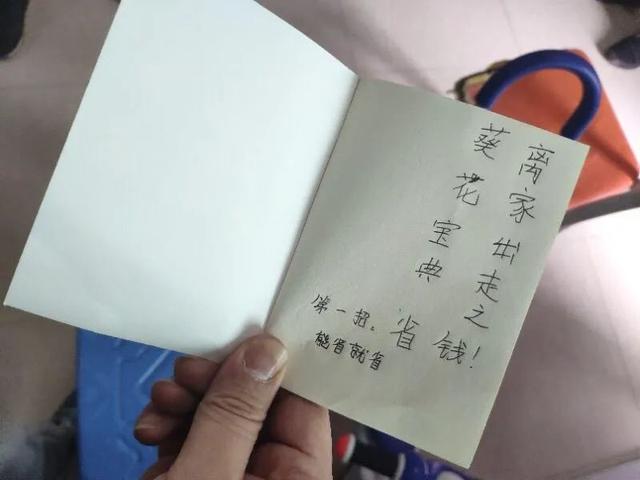 离家出走之
葵花宝典
第一招、省钱!
能省就省